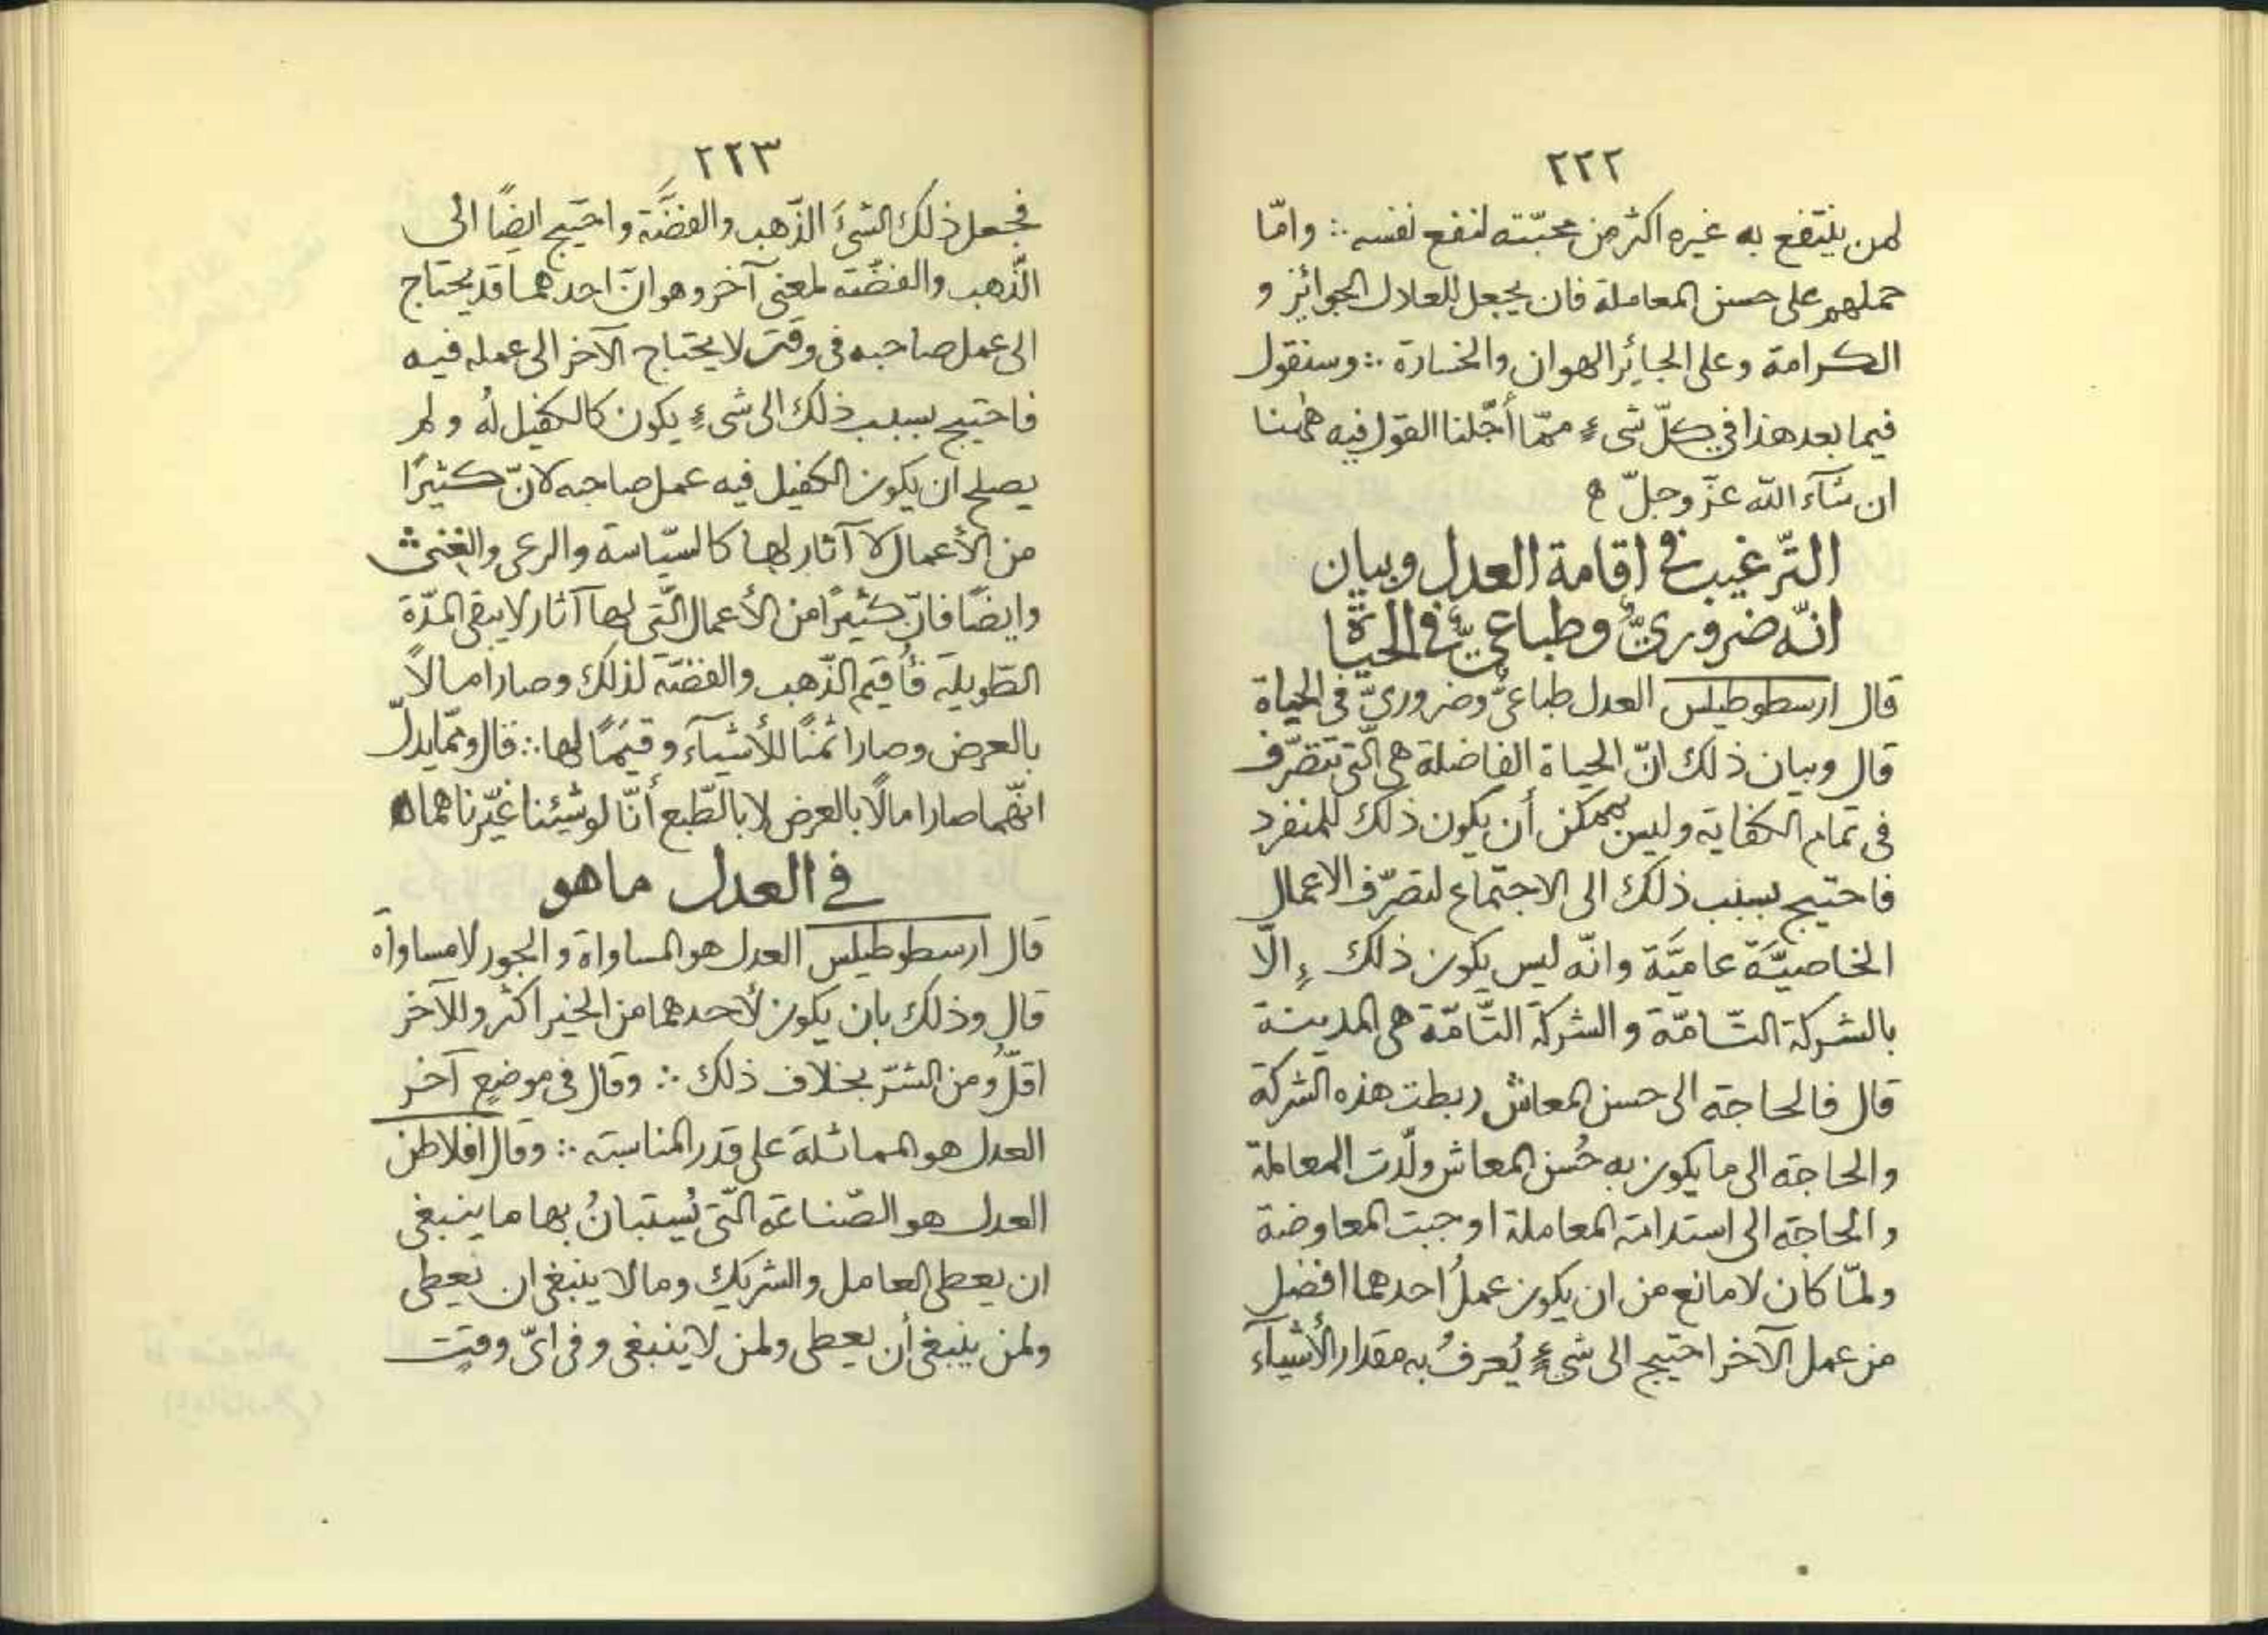 ٢٢٢
لمن ينتفع به غيره اكثر من محبّته لنفع نفسه ∴ وامّا
حملهم على حسن المعاملة فان يجعل للعادل الجوائز و
الكرامة وعلى الجائر الهوان والخسارة ∴ وسنقول
فيما بعد هذا في كلّ شىءٍ ممّا أجّلنا القول فيه ههنا
ان شآء الله عزّ وجلّ ه
التّرغيب في اقامة العدل وبيان
انّه ضروريٌّ وطباعيٌّ في الحياة
قال ارسطوطيلس العدل طباعىٌّ وضروريّ فى الحياة
قال وبيان ذلك انّ الحياة الفاضلة هى الّتى تتصرّف
فى تمام الكفاية وليس بممكن أن يكون ذلك للمنفرد
فاحتيج بسبب ذلك الى الاجتماع لتصرّف الاعمال
الخاصيّة عاميّة وانّه ليس يكون ذلك إلّا
بالشركة التّامّة والشركة التّامّة هى المدينة
قال فالحاجة الى حسن المعاش ربطت هذه الشركة
والحاجة الى ما يكون به حُسن المعاش ولّدت المعاملة
والحاجة الى استدامة المعاملة اوجبت المعاوضة
ولمّا كان لا مانع من ان يكون عملُ احدهما افضل
من عمل الآخر احتيج الى شىءٍ يُعرفُ به مقدار الأشياء
٢٢٣
فجعل ذلك الشىءَ الذّهب والفضّة واحتيج ايضًا الى
الذّهب والفضّة لمعنى آخر وهو انّ احدهما قد يحتاج
الى عمل صاحبه فى وقت لا يحتاج الآخر الى عمله فيه
فاحتيج بسبب ذلك الى شىءٍ يكون كالكفيل لُه ولم
يصلح ان يكون الكفيل فيه عمل صاحبه لانّ كثيرًا
من الأعمال لا آثار لها كالسّياسة والرعى
وايضًا فانّ كثيرًا من الأعمال الّتى لها آثار لا يبقى المدّة
الطّويلة فأُقيم الذّهب والفضّة لذلك وصارا مالاً
بالعرض وصارا ثمنًا للأشيآء وقيَمًا لها ∴ قال وممّا يدلّ
انّهما صارا مالًا بالعرض لا بالطّبع أنّا لو شيئنا غيّرناهما ه
في العدل ما هو
قال ارسطوطيلس العدل هو المساواة والجور لا مساواة
قال وذلك بان يكون لأحدهما من الخير اكثر وللآخر
اقلُّ ومن الشرّ بخلاف ذلك ∴ وقال فى موضعٍ آخر
العدل هو المماثلة على قدر المناسبة ∴ وقال افلاطن
العدل هو الصّناعة الّتى يُستبانُ بها ما ينبغى
ان يعطى العامل والشريك وما لا ينبغى ان يعطى
ولمن ينبغى أن يعطى ولمن لا ينبغى وفى اىّ وقتٍ